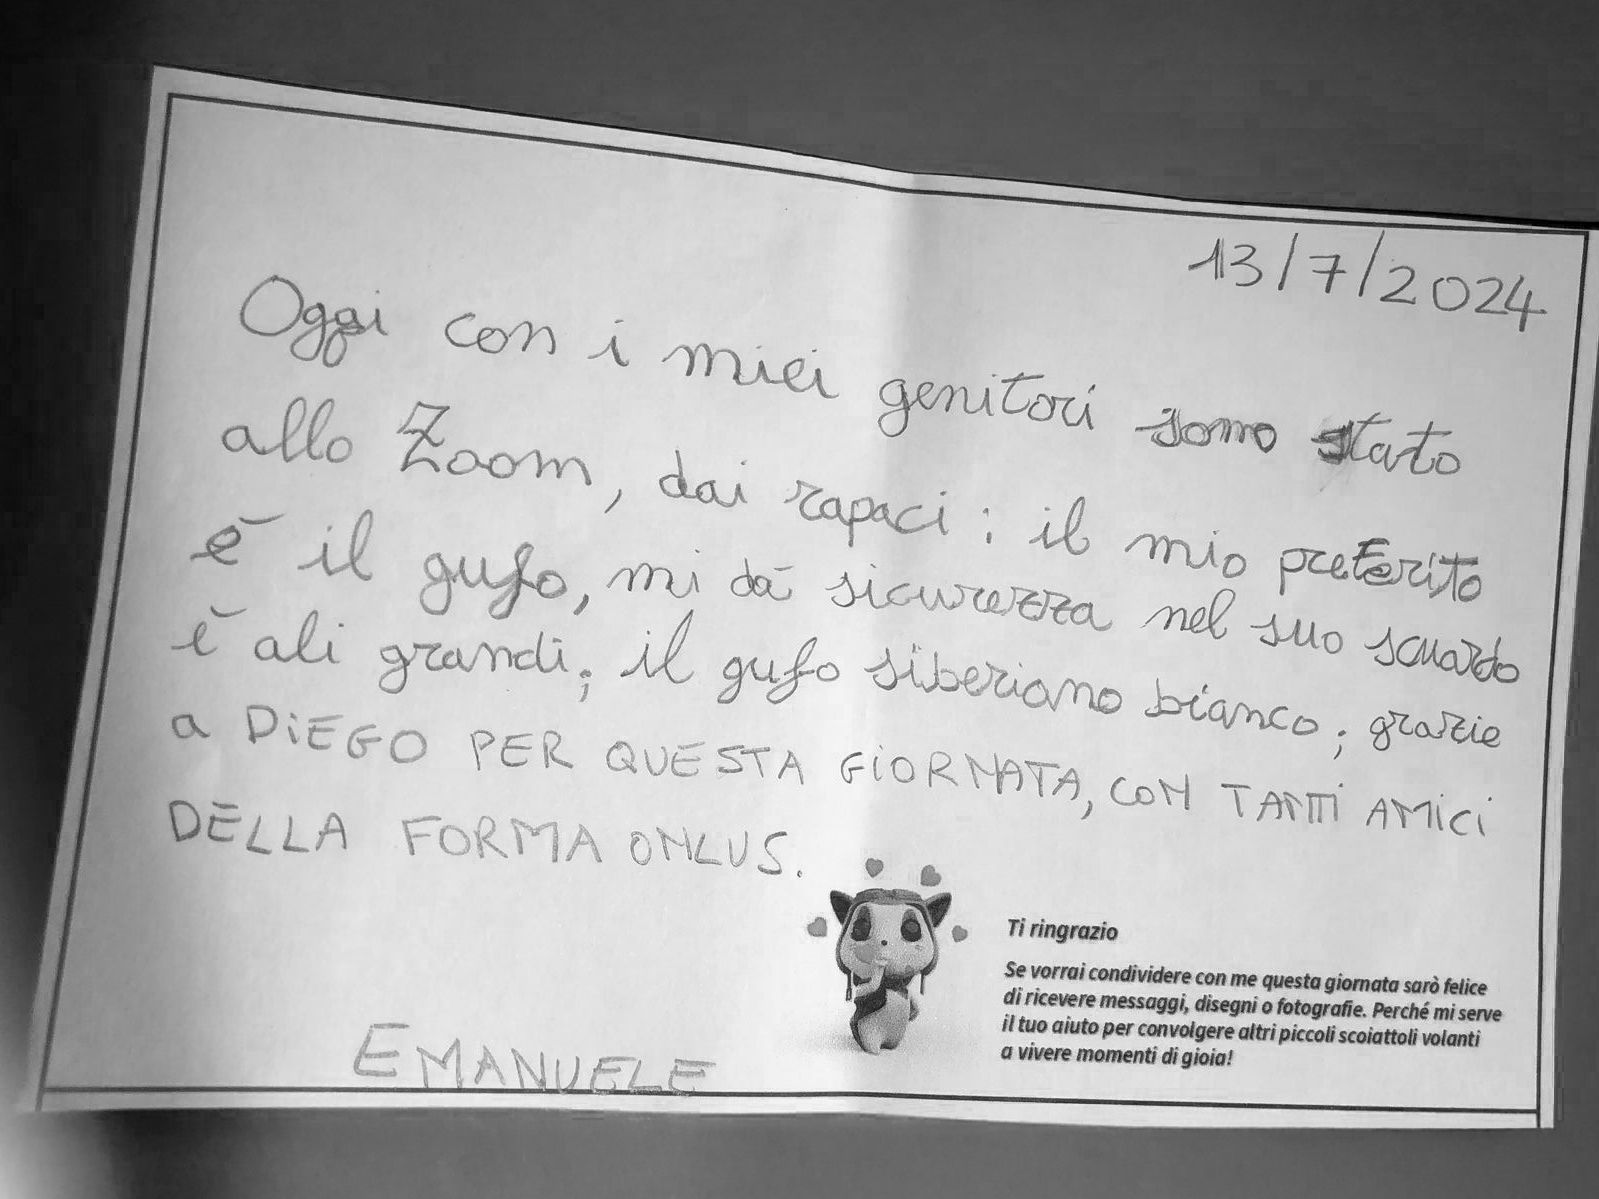 13/7/2024
Oggi con i miei genitori sono stato
allo Zoom, dai rapaci: il mio preferito
è il gufo, mi dà sicurezza nel suo scuardo
è ali grandi; il gufo siberiano bianco; grazie
a DiEGO PER QUESTA GiORNATA, CON TANTi AMiCi
DELLA FORMA ONLUS.
EMANUELE
Ti ringrazio
Se vorrai condividere con me questa giornata sarò felice
di ricevere messaggi, disegni o fotografie. Perché mi serve
il tuo aiuto per convolgere altri piccoli scoiattoli volanti
a vivere momenti di gioia!